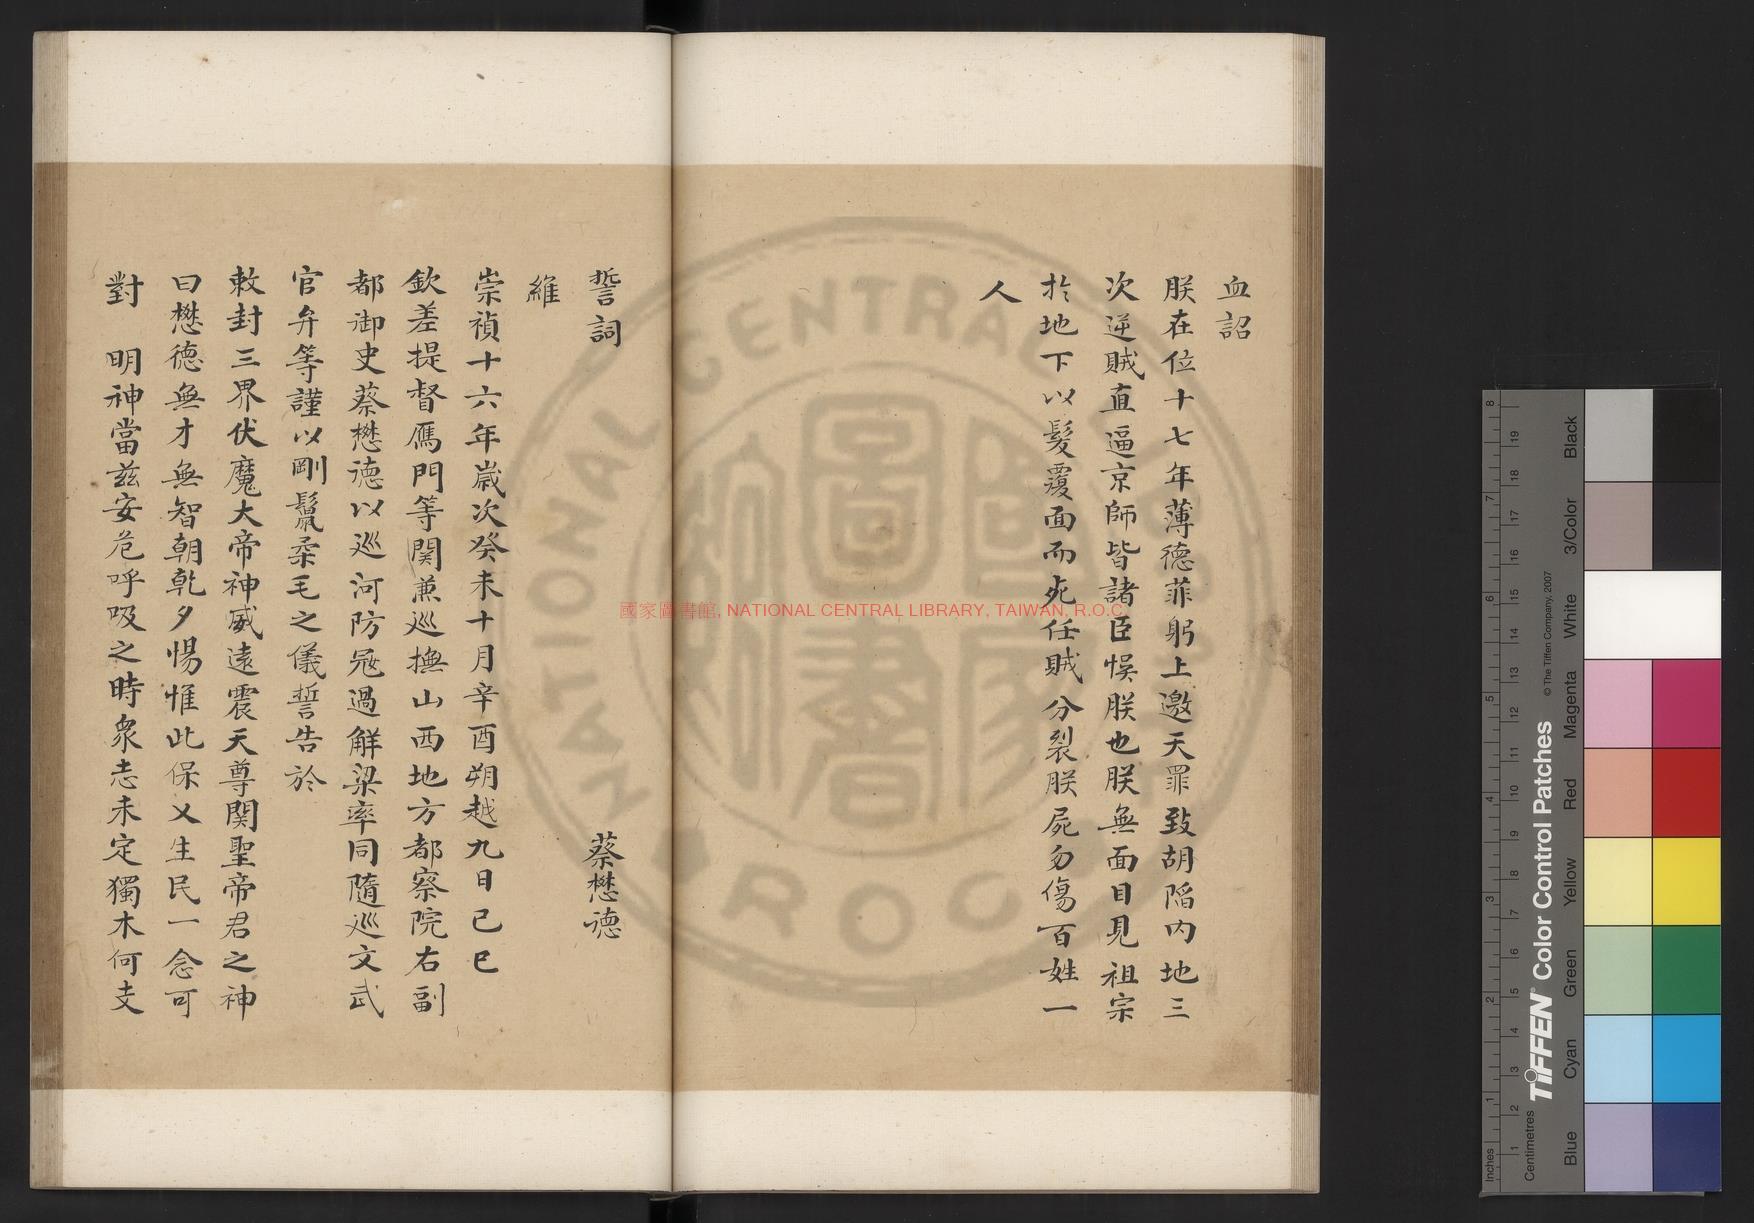 血詔
朕在位十七年薄德菲躬上邀天罪致胡陷内地三
次逆賊直逼京師皆諸臣悞朕也朕無面目見祖宗
於地下以髮覆面而死任賊分裂朕屍勿傷百姓一
人
誓詞 蔡懋德
維
崇禎十六年歲次癸未十月辛酉朔越九日己巳
欽差提督鴈門等関兼巡撫山西地方都察院右副
都御史蔡懋德以巡河防冦過解梁率同隨巡文武
官弁等謹以剛鬣柔毛之儀誓告於
敕封三界伏魔大帝神威遠震天尊関聖帝君之神
曰懋德無才無智朝乾夕惕惟此保乂生民一念可
對 明神當兹安危呼吸之時衆志未定獨木何支
國家圖書館, NATIONAL CENTRAL LIBRARY, TAIWAN, R.O.C
NATIONAL CENTRAL
R.O.C
國家圖書館
Inches
Centimetres
TIFFEN® Color Control Patches
© The Tiffen Company, 2007
Blue
Cyan
Green
Yellow
Red
Magenta
White
3/Color
Black